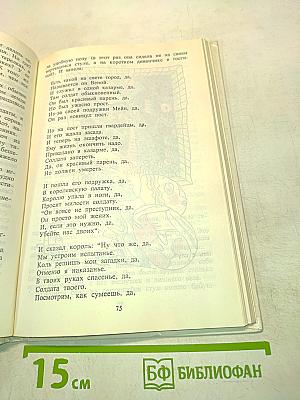 на удобную позу (в этот раз она сидела не на своем
вертящемся стуле, а на коротком диванчике в гости-
ной). И запела:
Есть такой на свете город, да,
Называется он Веной.
И служил в одной казарме, да,
Там солдат обыкновенный.
Он был красивый парень, да,
Но был ужасно прост.
Из-за своей подружки Мейн, да,
Он раз покинул пост.
Но на пост пришли гвардейцы, да,
И его ждала засада.
И теперь на эшафоте, да,
Ему жизнь окончить надо.
Приказано в казарме, да,
Солдата запереть.
Да, он красивый парень, да,
Но должен умереть.
И пошла его подружка, да,
В королевскую палату.
Королю упала в ноги, да,
Просит милости солдату.
"Он вовсе не преступник, да,
Он просто мой жених.
И, если это нужно, да,
Убейте нас двоих".
И сказал король: "Ну что же, да,
Мы устроим испытанье.
Коль решишь мои загадки, да,
Отменю я наказанье.
В твоих руках спасенье, да,
Солдата твоего.
Посмотрим, как сумеешь, да,
75
15 см
БФ БИБЛИОФАН